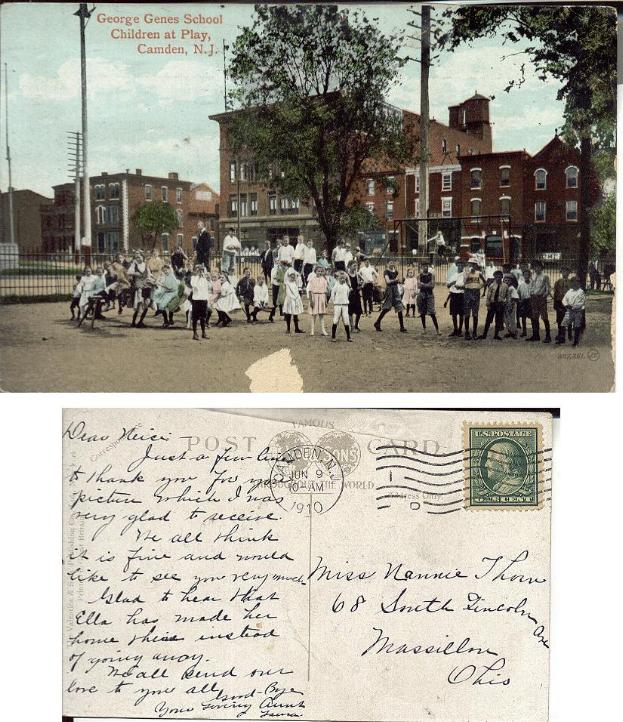 George Genes School
Children at Play,
Camden, N.J.
POST CARD
FAMOUS
THROUGHOUT THE WORLD
Address Only
U.S. POSTAGE
CAMDEN, N.J.
JUN 9
10-AM
1910
Dear Neice
Just a few lines
to thank you for your
picture which I was
very glad to receive.
We all think
it is fine and would
like to see you very much.
Glad to hear that
Ella has made her
home there instead
of going away.
We all send our
love to you all Good-Bye
Your loving Aunt
Miss Nannie Thorn
68 South Lincoln Ave
Massillon
Ohio